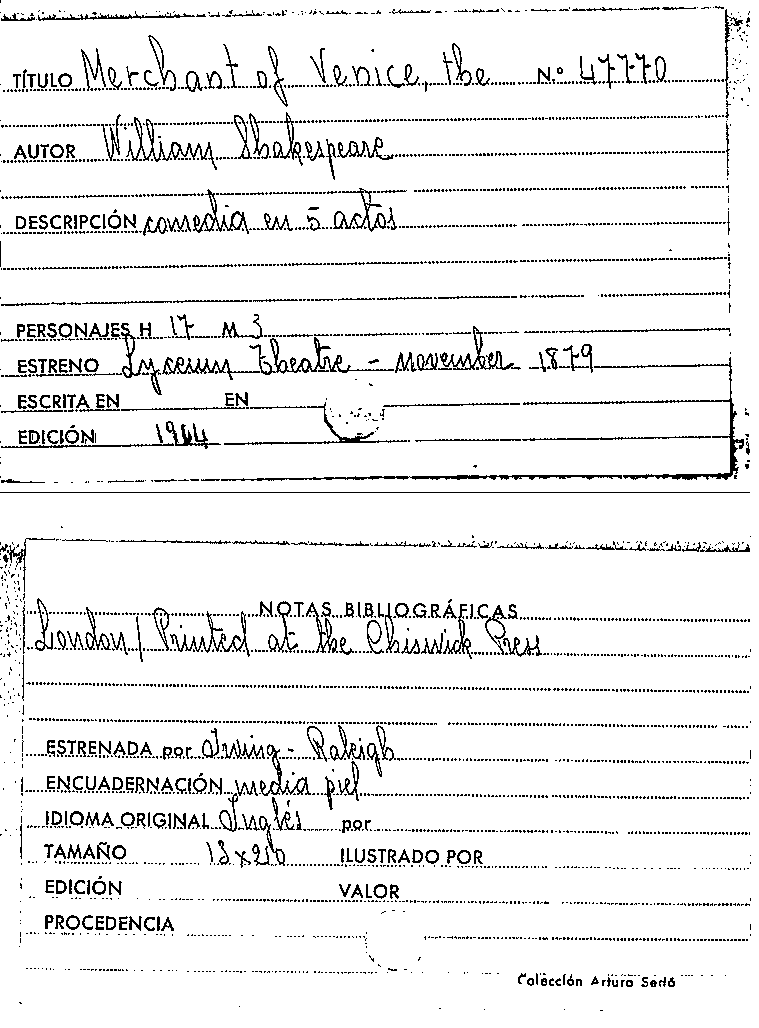 TÍTULO Merchant of Venice, the Nº 47770
AUTOR William Shakespeare
DESCRIPCIÓN comedia en 5 actos
PERSONAJES H 17 M 3
ESTRENO Lyceum Theatre - november 1879
ESCRITA EN EN
EDICIÓN
NOTAS BIBLIOGRÁFICAS
London / Printed at the Chiswick Press
ESTRENADA por Irving - Raleigh
ENCUADERNACIÓN media piel
IDIOMA ORIGINAL Inglés por
TAMAÑO ILUSTRADO POR
EDICIÓN VALOR
PROCEDENCIA
Colección Arturo Sedó